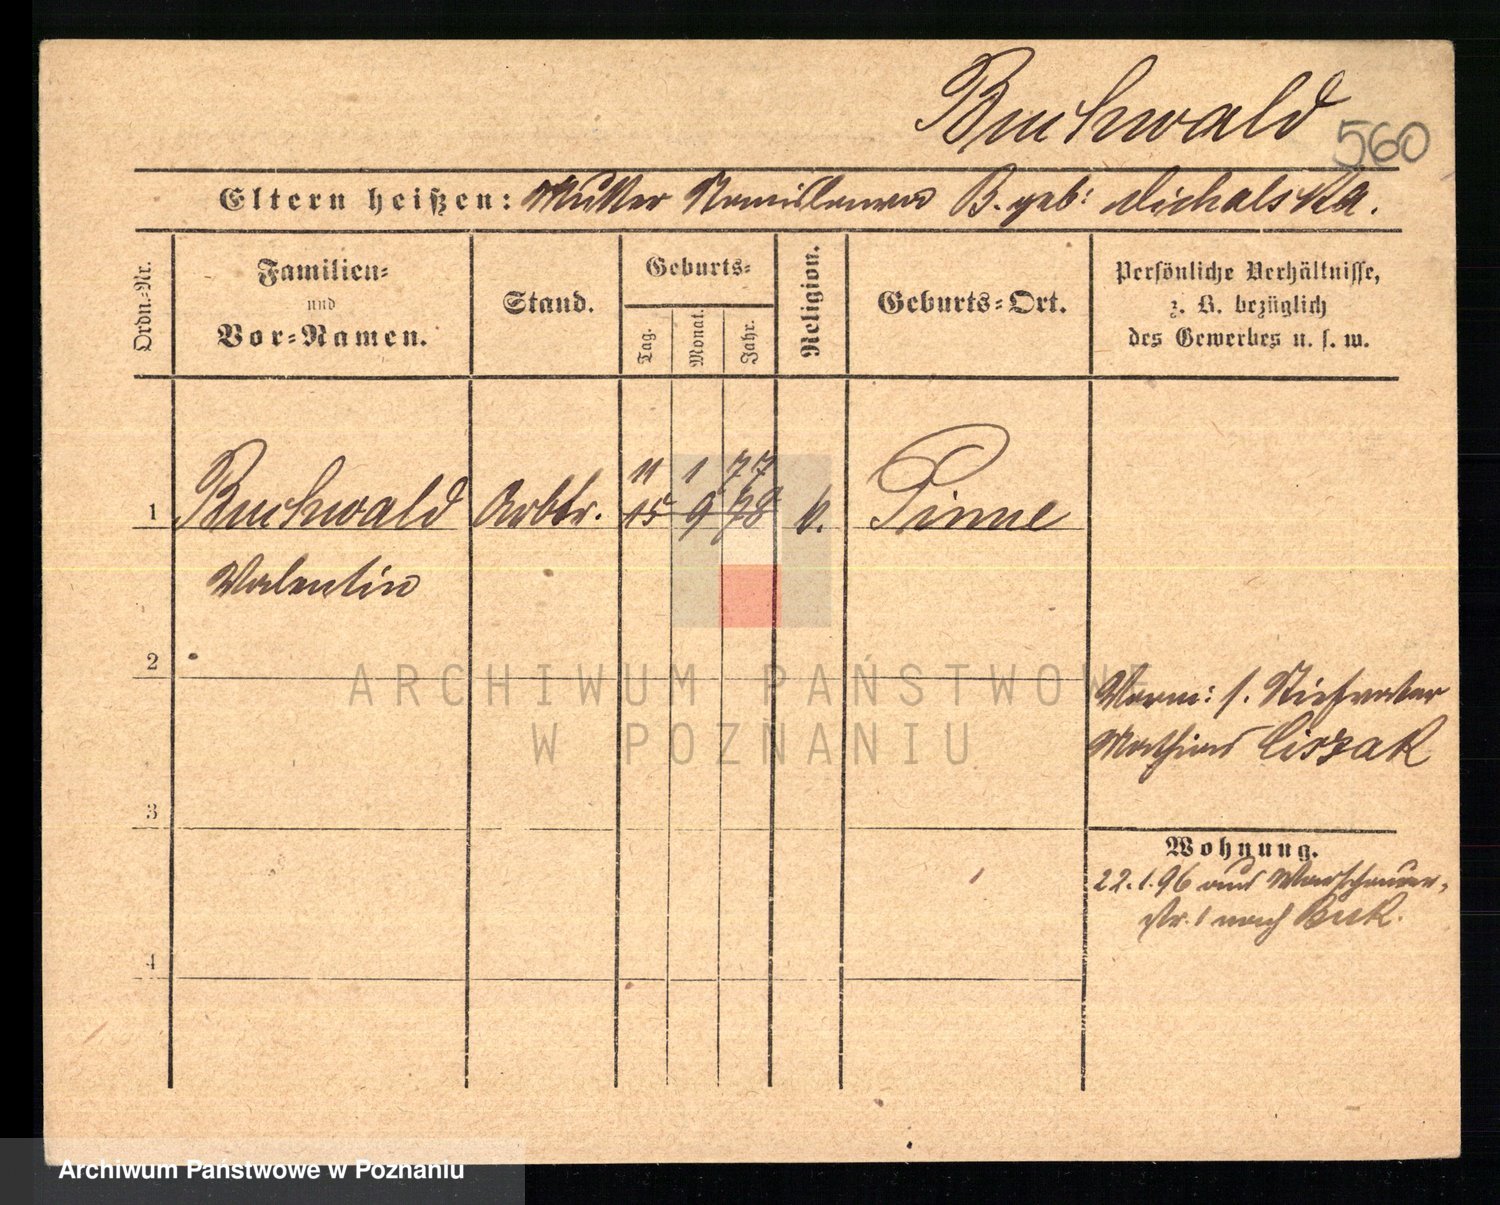 Buchwald
560
Eltern heißen: Mutter Stanislawa B. geb: Michalska.
Ordn.-Nr.
Familien-
und
Vor-Namen.
Stand.
Geburts-
Tag.
Monat.
Jahr.
Religion.
Geburts-Ort.
Persönliche Verhältnisse,
z. B. bezüglich
des Gewerbes u. s. w.
11 1 77
1 Buchwald Arbtr. 15 9 78 k. Pinne
Valentin
2
Vorm: s. Stiefvater
Mathias Ciszak
3
Wohnung.
22.1.96 aus Warschauer-
str. 1 nach Buk.
4
ARCHIWUM PAŃSTWOWE
W POZNANIU
Archiwum Państwowe w Poznaniu